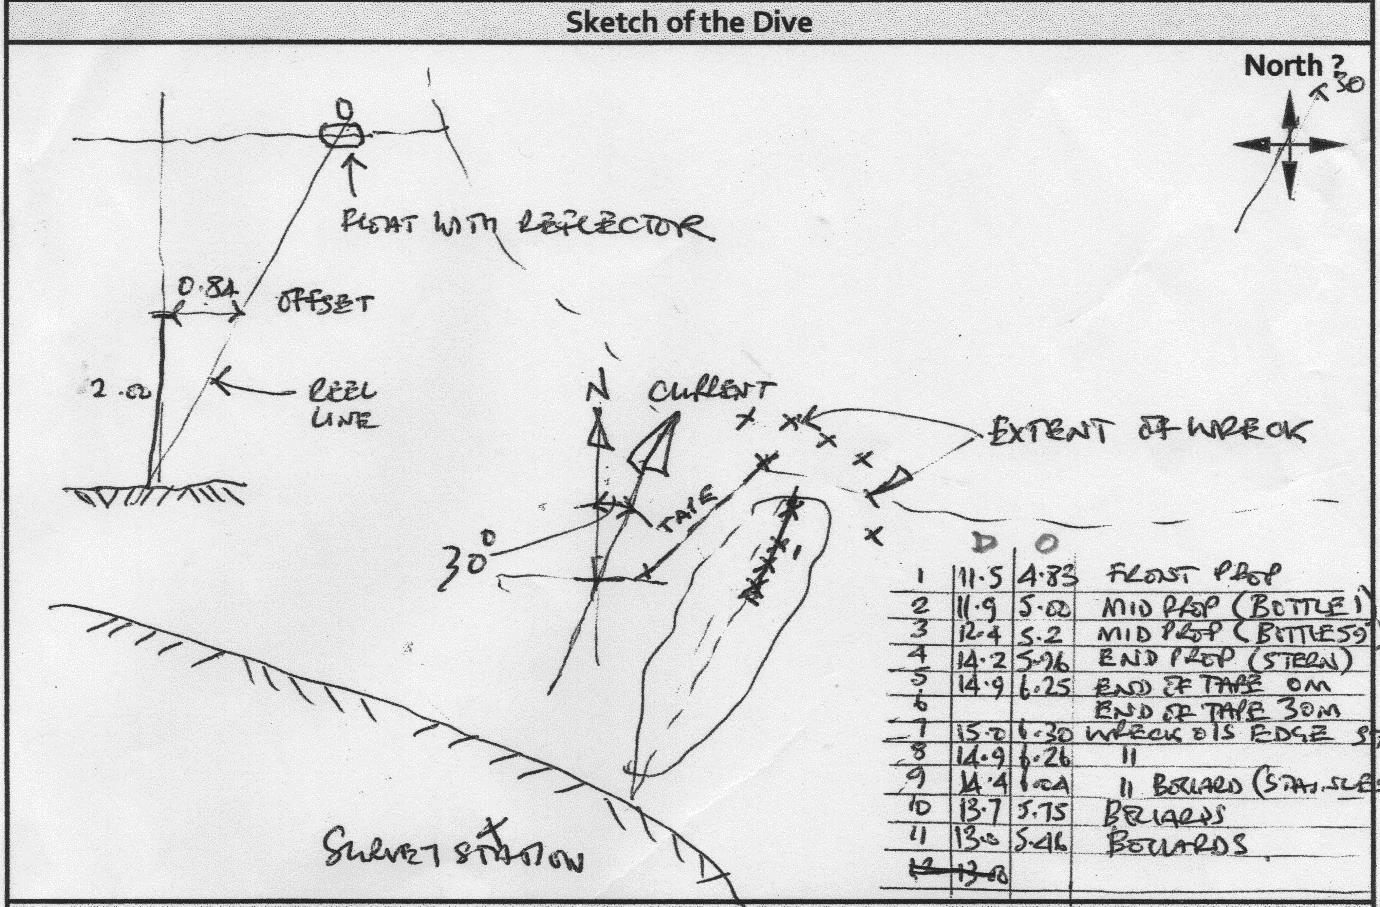 Sketch of the Dive
North ?
30
FLOAT WITH REFLECTOR
0.84 OFFSET
2.00
REEL
LINE
N
CURRENT
EXTENT OF WRECK
TAPE
30°
1
D O
1 11.5 4.83 FRONT PROP
2 11.9 5.00 MID PROP (BOTTLE 1)
3 12.4 5.2 MID PROP (BOTTLE 59
4 14.2 5.96 END PROP (STERN)
5 14.9 6.25 END OF TAPE 0M
6 END OF TAPE 30M
7 15.0 6.30 WRECK O/S EDGE
8 14.9 6.26 "
9 14.4 6.04 " BOLLARD
10 13.7 5.75 BOLLARDS
11 13.0 5.46 BOLLARDS
SURVEY STATION